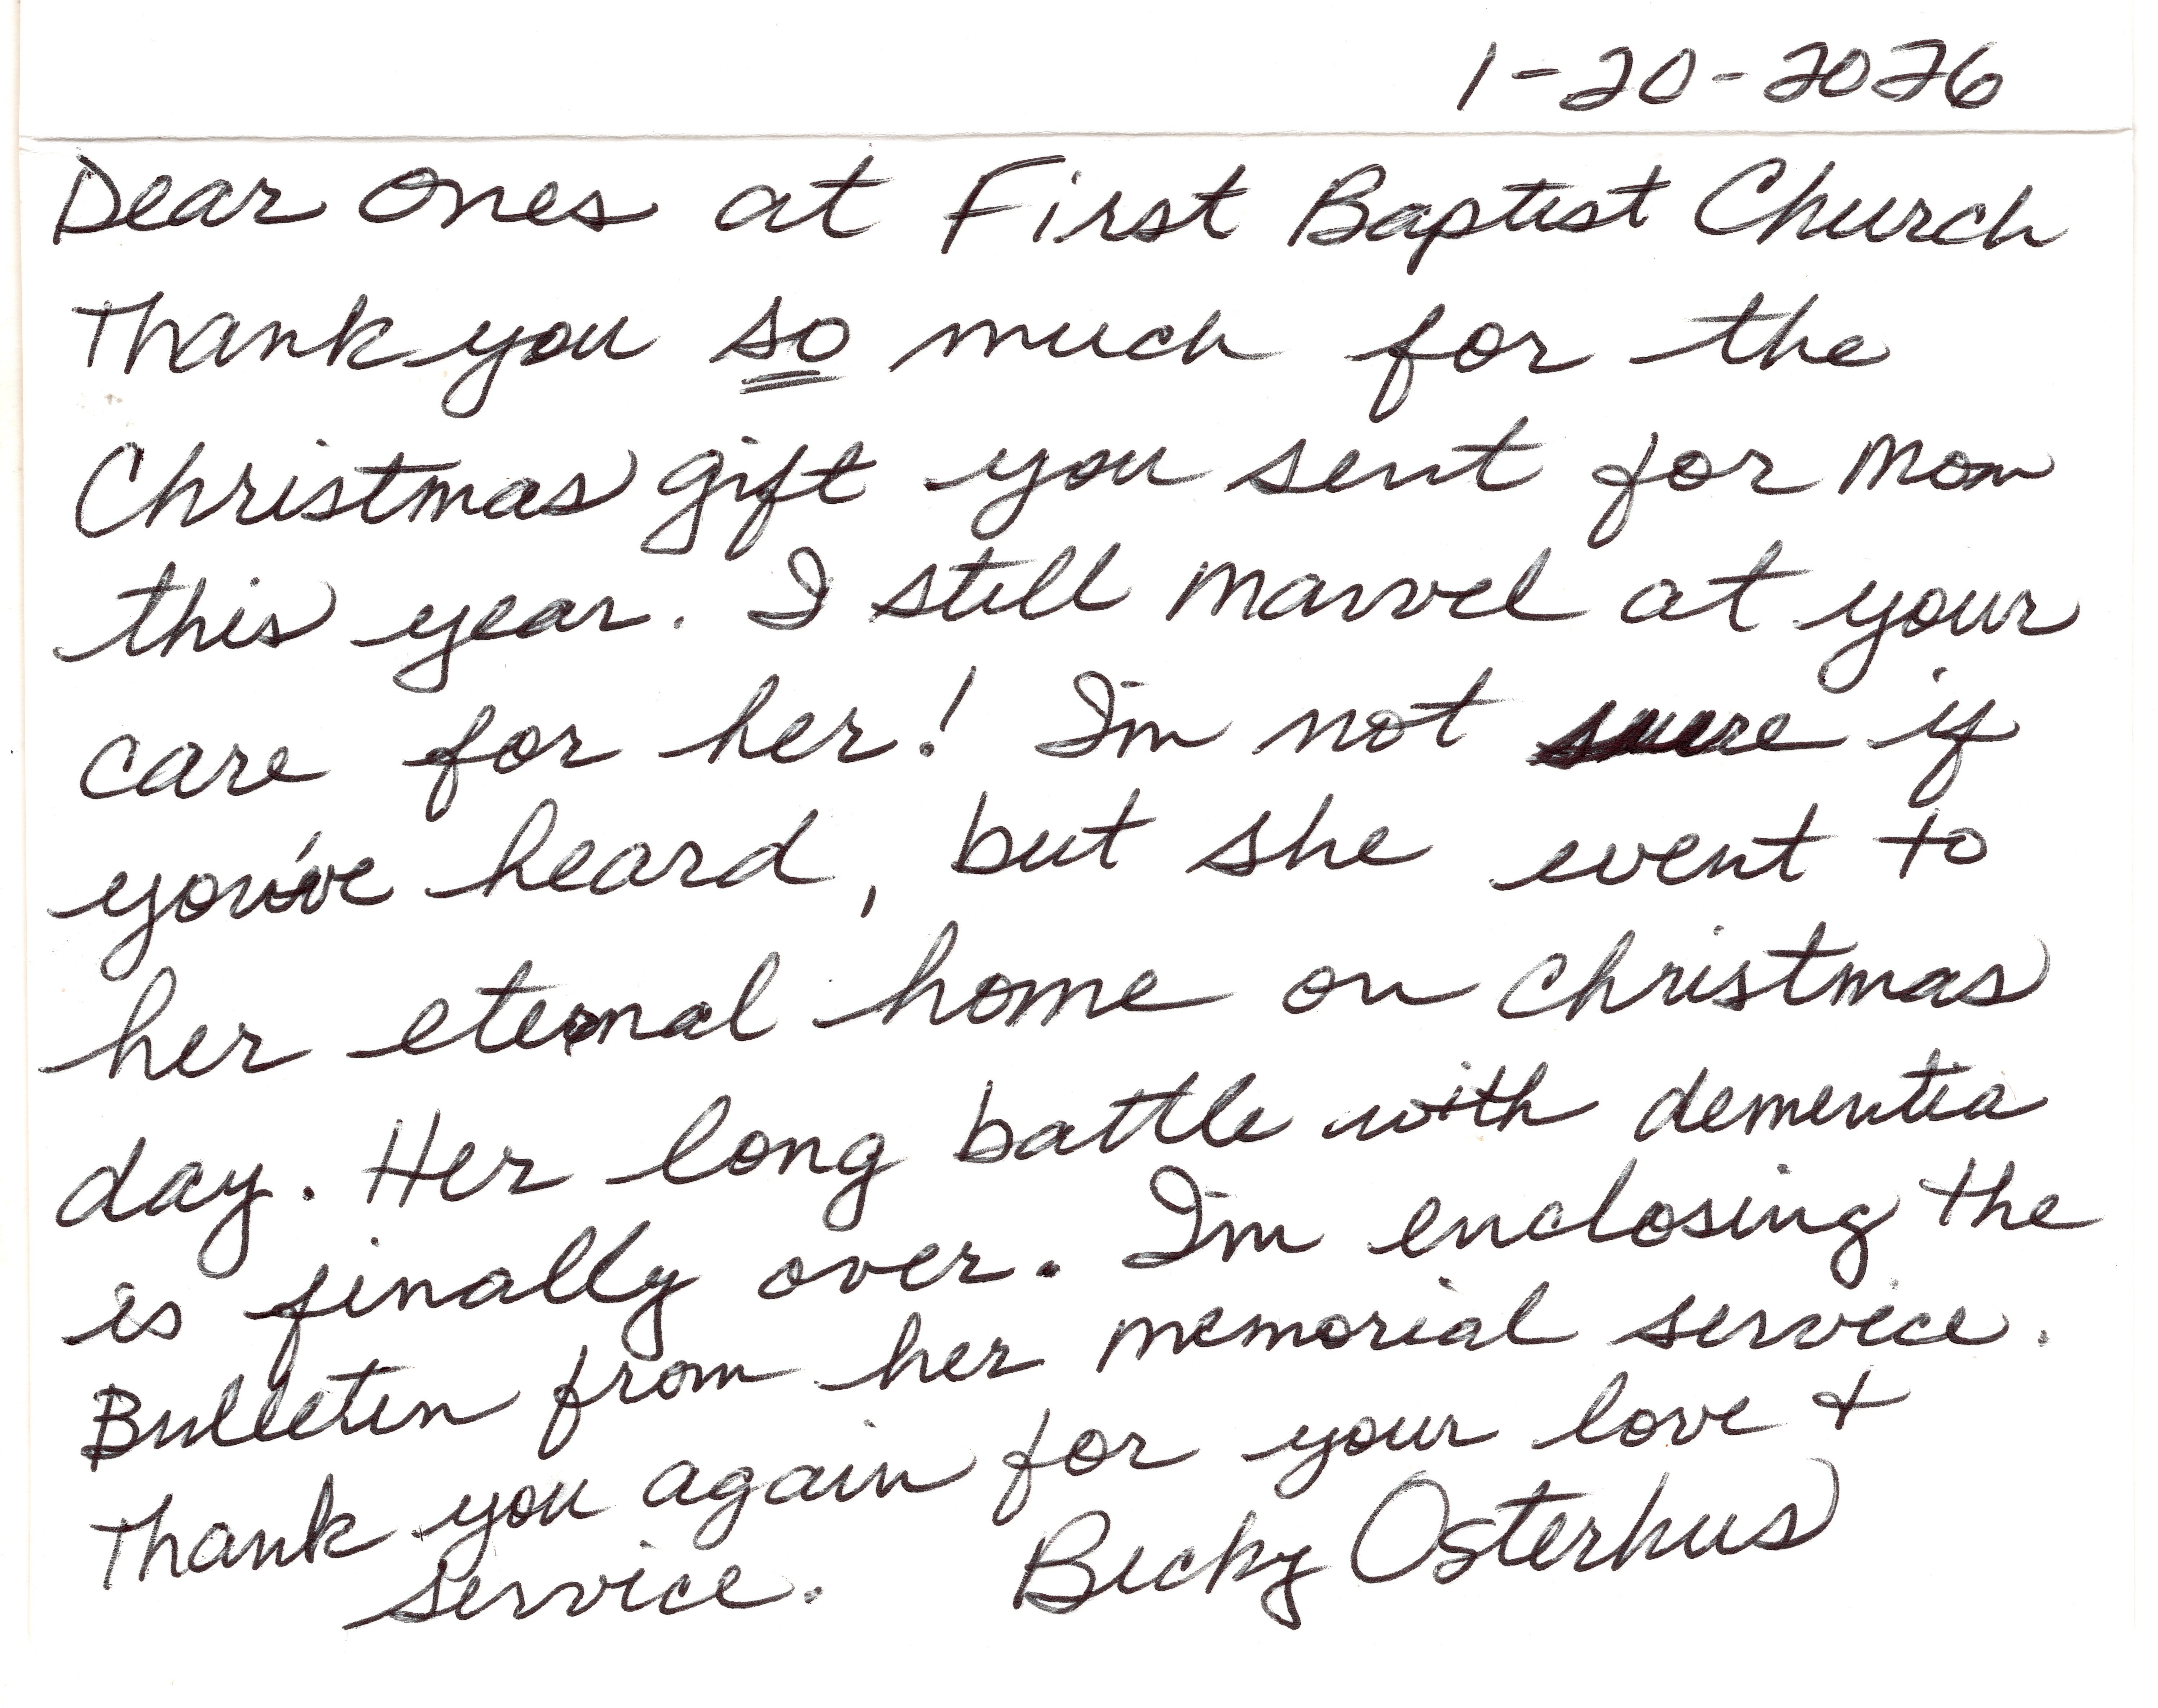 1-20-2026
Dear ones at First Baptist Church
Thank you so much for the
Christmas gift you sent for Mom
this year. I still marvel at your
care for her! I'm not sure if
you've heard, but she went to
her eternal home on Christmas
day. Her long battle with dementia
is finally over. I'm enclosing the
Bulletin from her memorial service.
Thank you again for your love &
service. Becky Osterhus